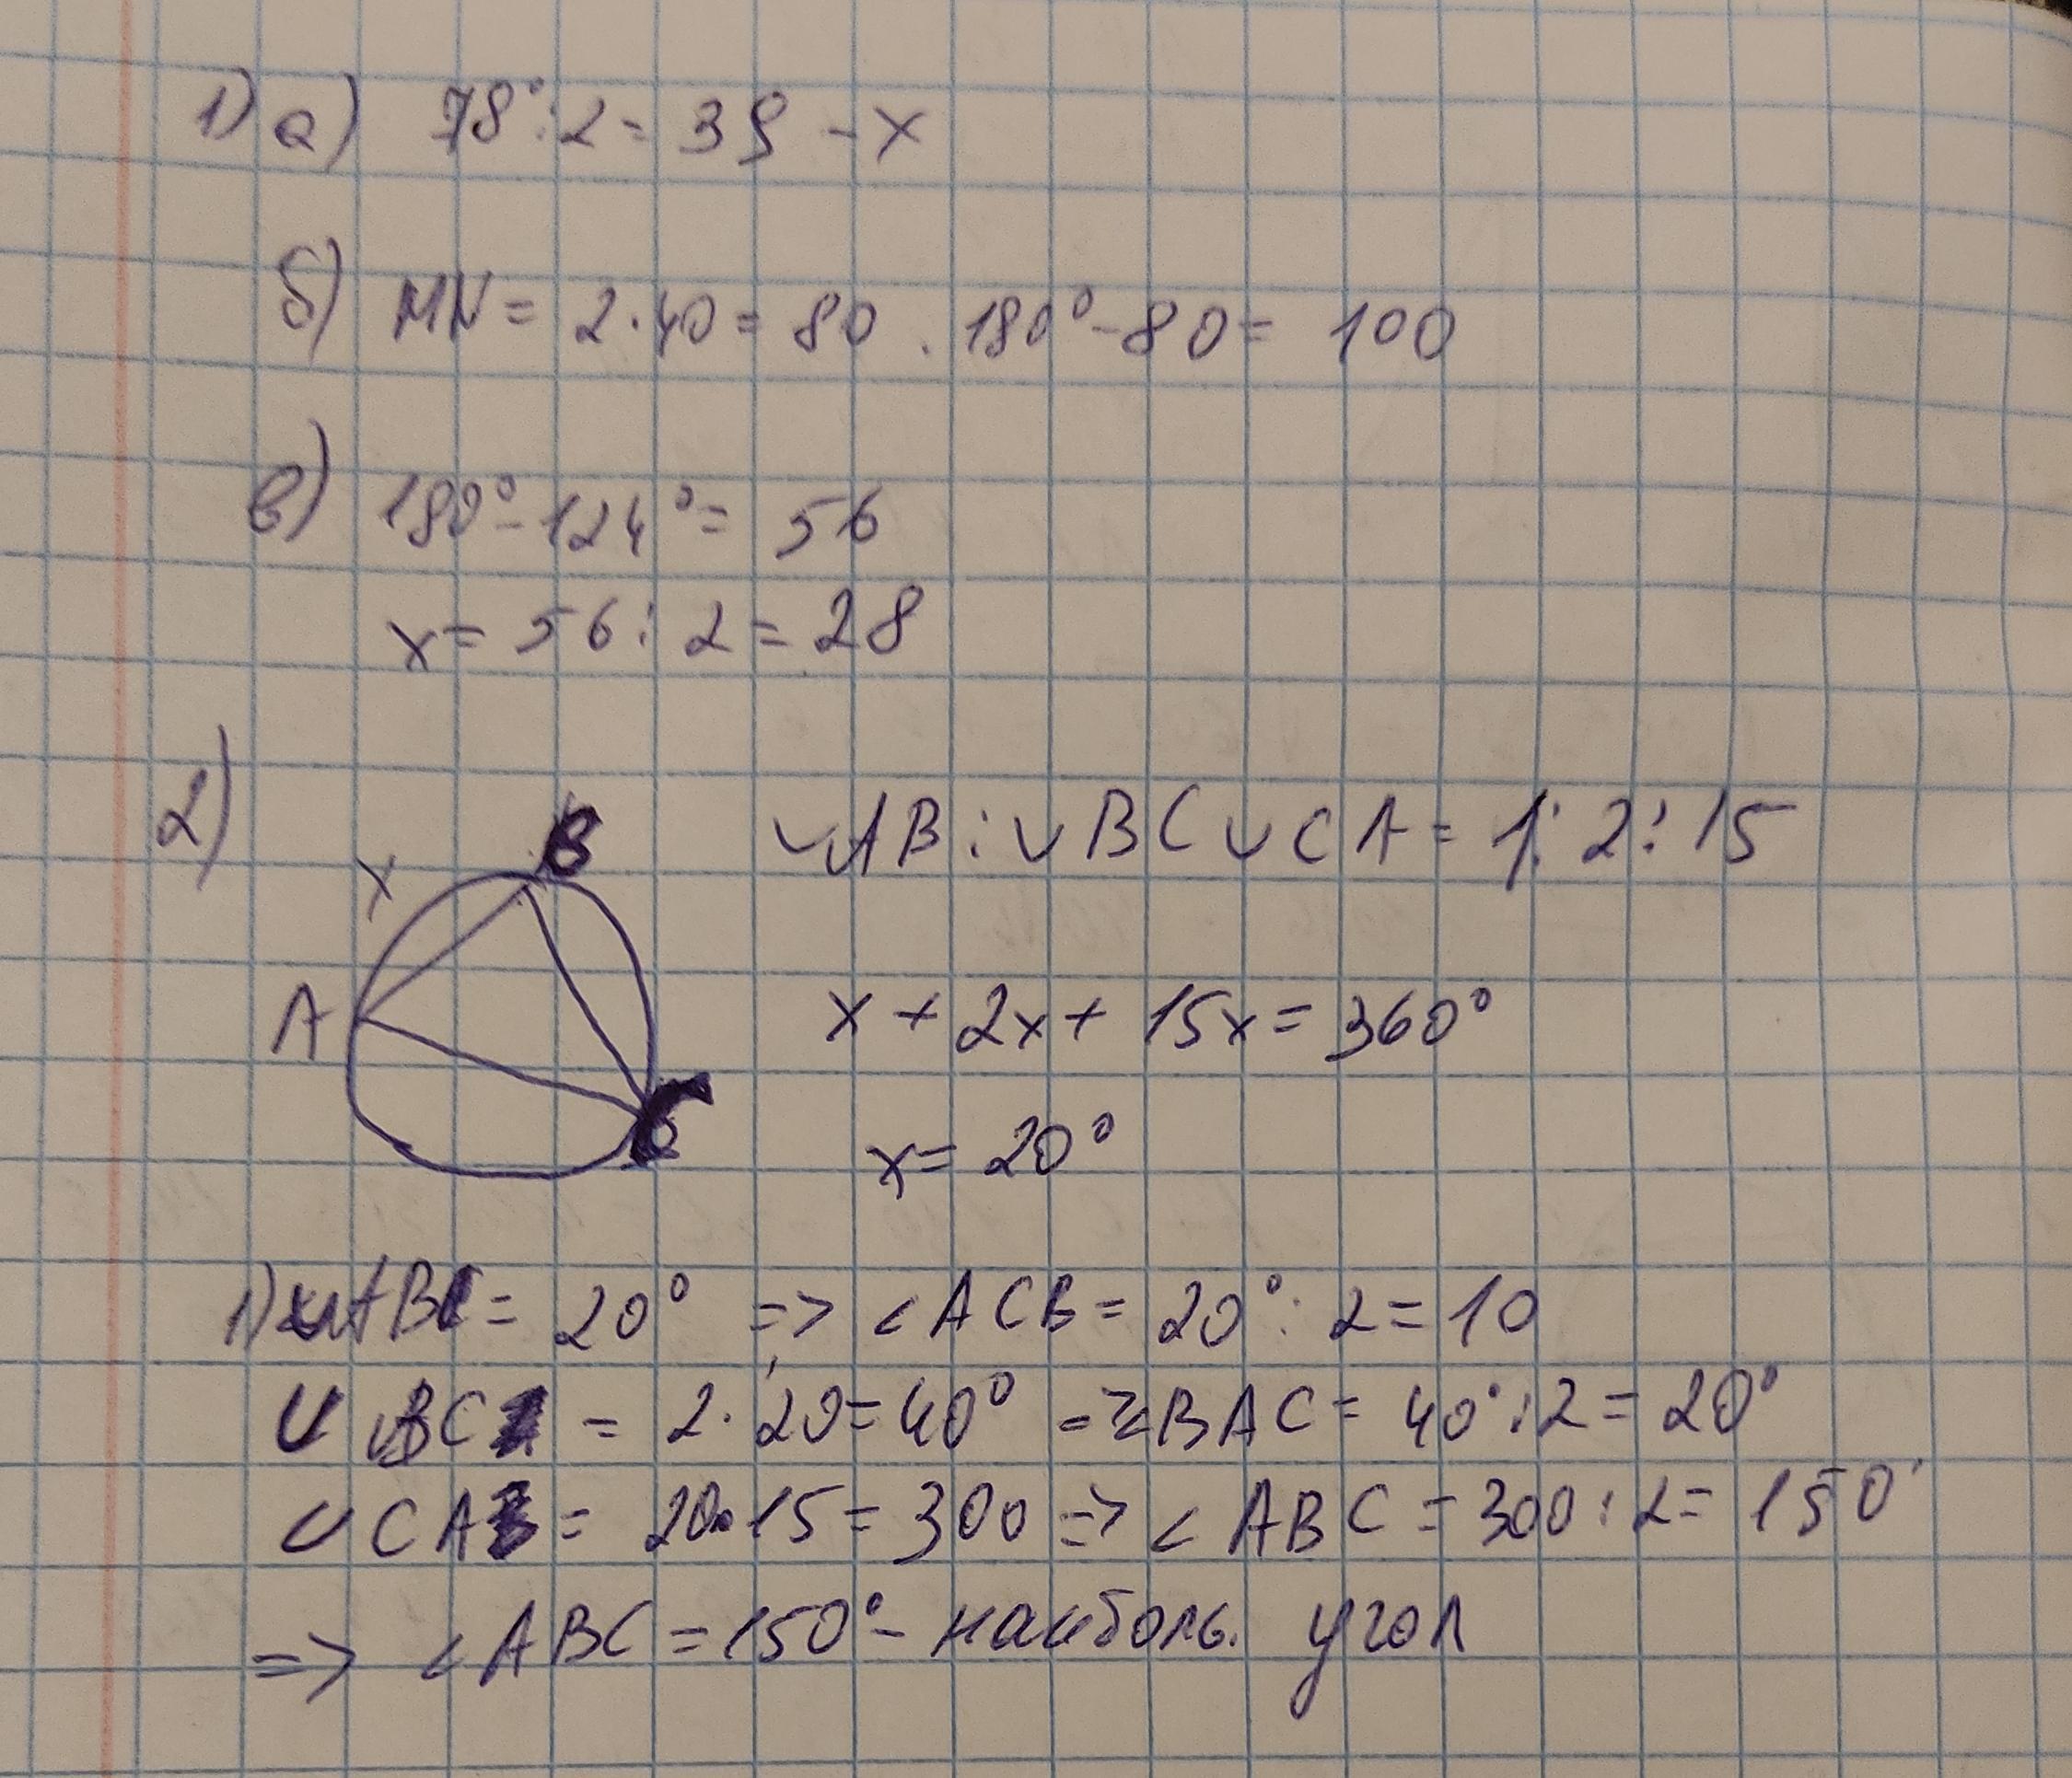 1) а) 78° : 2 = 39 - x
б) MN = 2 · 40 = 80 . 180° - 80 = 100
в) 180° - 124° = 56
x = 56 : 2 = 28
2)
B
x
A
C
◡AB : ◡BC ◡CA = 1 : 2 : 15
x + 2x + 15x = 360°
x = 20°
1) ◡AB = 20° => ∠ACB = 20° : 2 = 10
◡BC = 2 · 20 = 40° => ∠BAC = 40° : 2 = 20°
◡CA = 20 · 15 = 300 => ∠ABC = 300 : 2 = 150°
=> ∠ABC = 150° - наиболь. угол